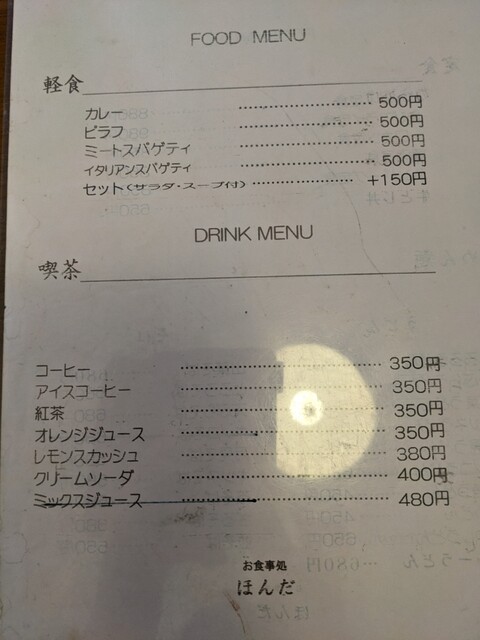 FOOD MENU
軽食
カレー 500円
ピラフ 500円
ミートスパゲティ 500円
イタリアンスパゲティ 500円
セット(サラダ・スープ付) +150円
DRINK MENU
喫茶
コーヒー 350円
アイスコーヒー 350円
紅茶 350円
オレンジジュース 350円
レモンスカッシュ 380円
クリームソーダ 400円
ミックスジュース 480円
お食事処
ほんだ